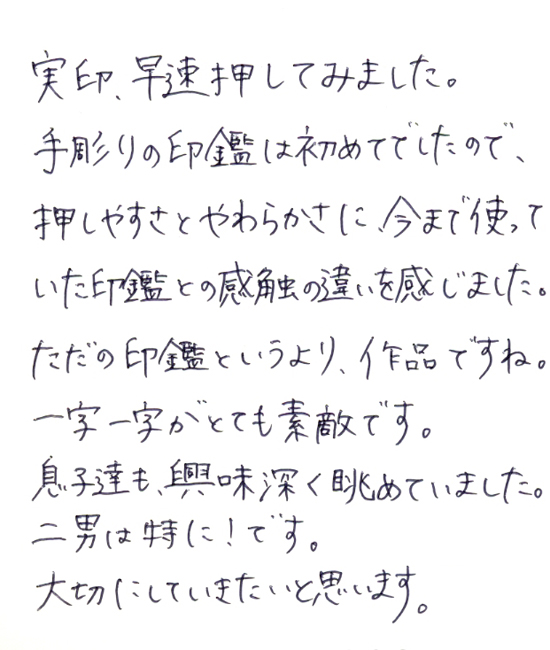 実印、早速押してみました。
手彫りの印鑑は初めてでしたので、
押しやすさとやわらかさに、今まで使って
いた印鑑との感触の違いを感じました。
ただの印鑑というより、作品ですね。
一字一字がとても素敵です。
息子達も、興味深く眺めていました。
二男は特に！です。
大切にしていきたいと思います。